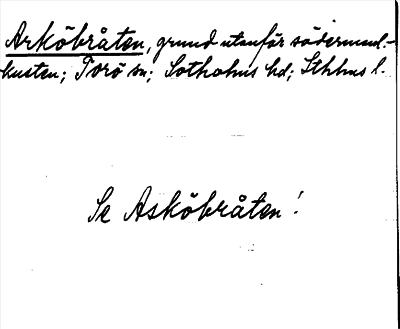 Arköbråten, grund utanför södermanl.-
kusten; Torö sn; Sotholms hd; Sthlms l.
Se Asköbråten!